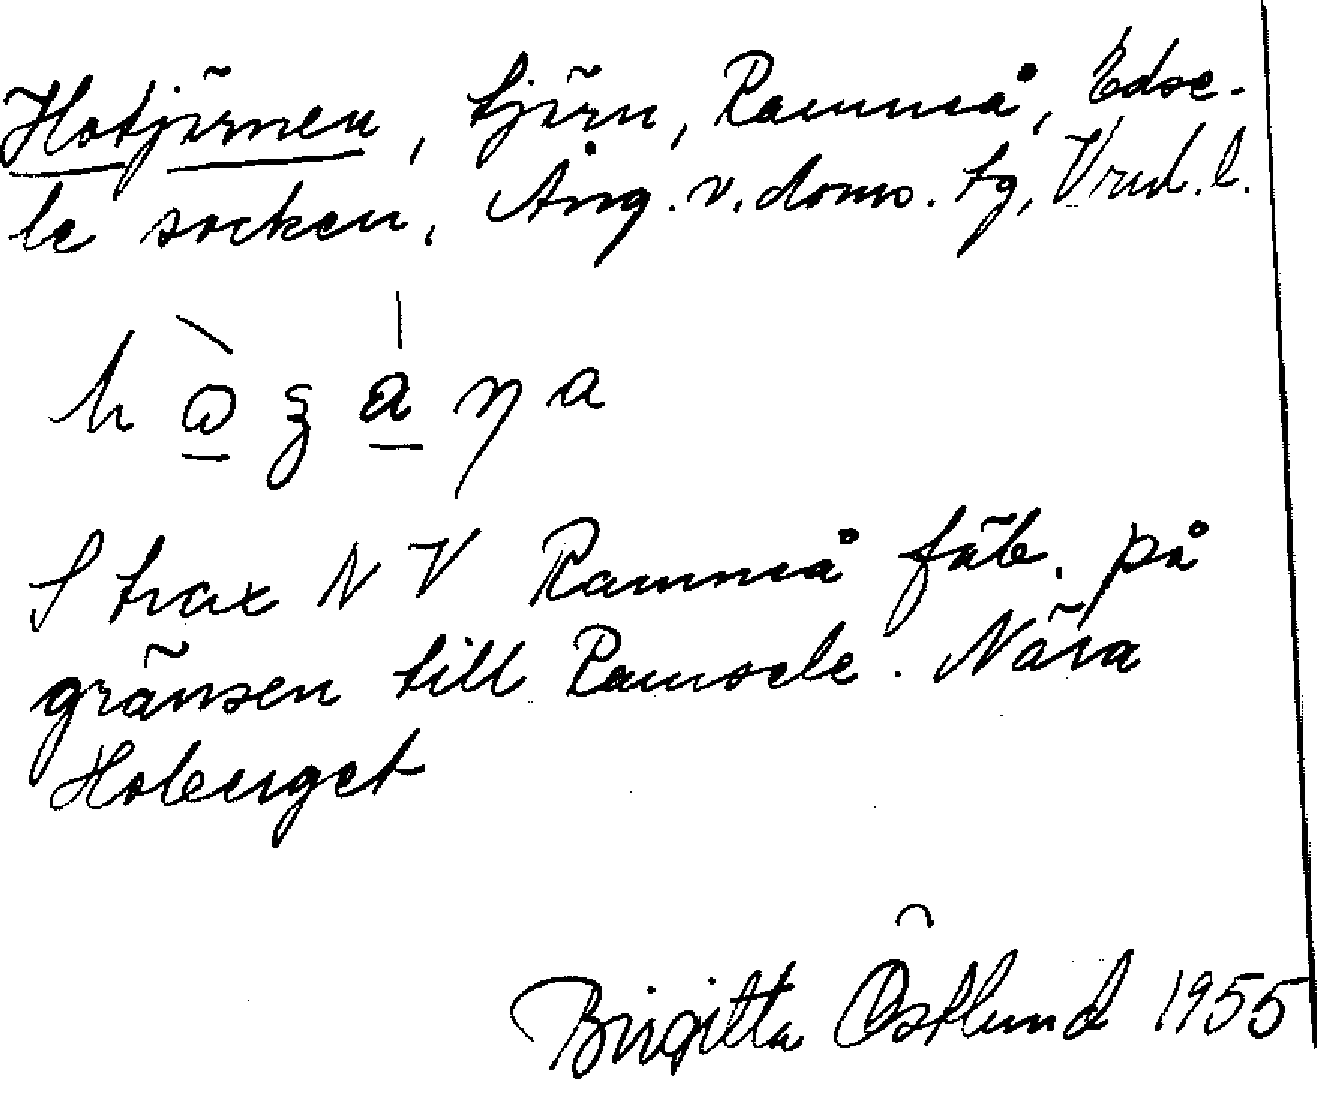 Hotjärnen, tjärn, Rammså, Edse-
le socken, Ång. v. doms. tg, Vrml. l.
Strax NV Rammså fäb. på
gränsen till Ramsele. Nära
Hoberget
Birgitta Östlund 1955